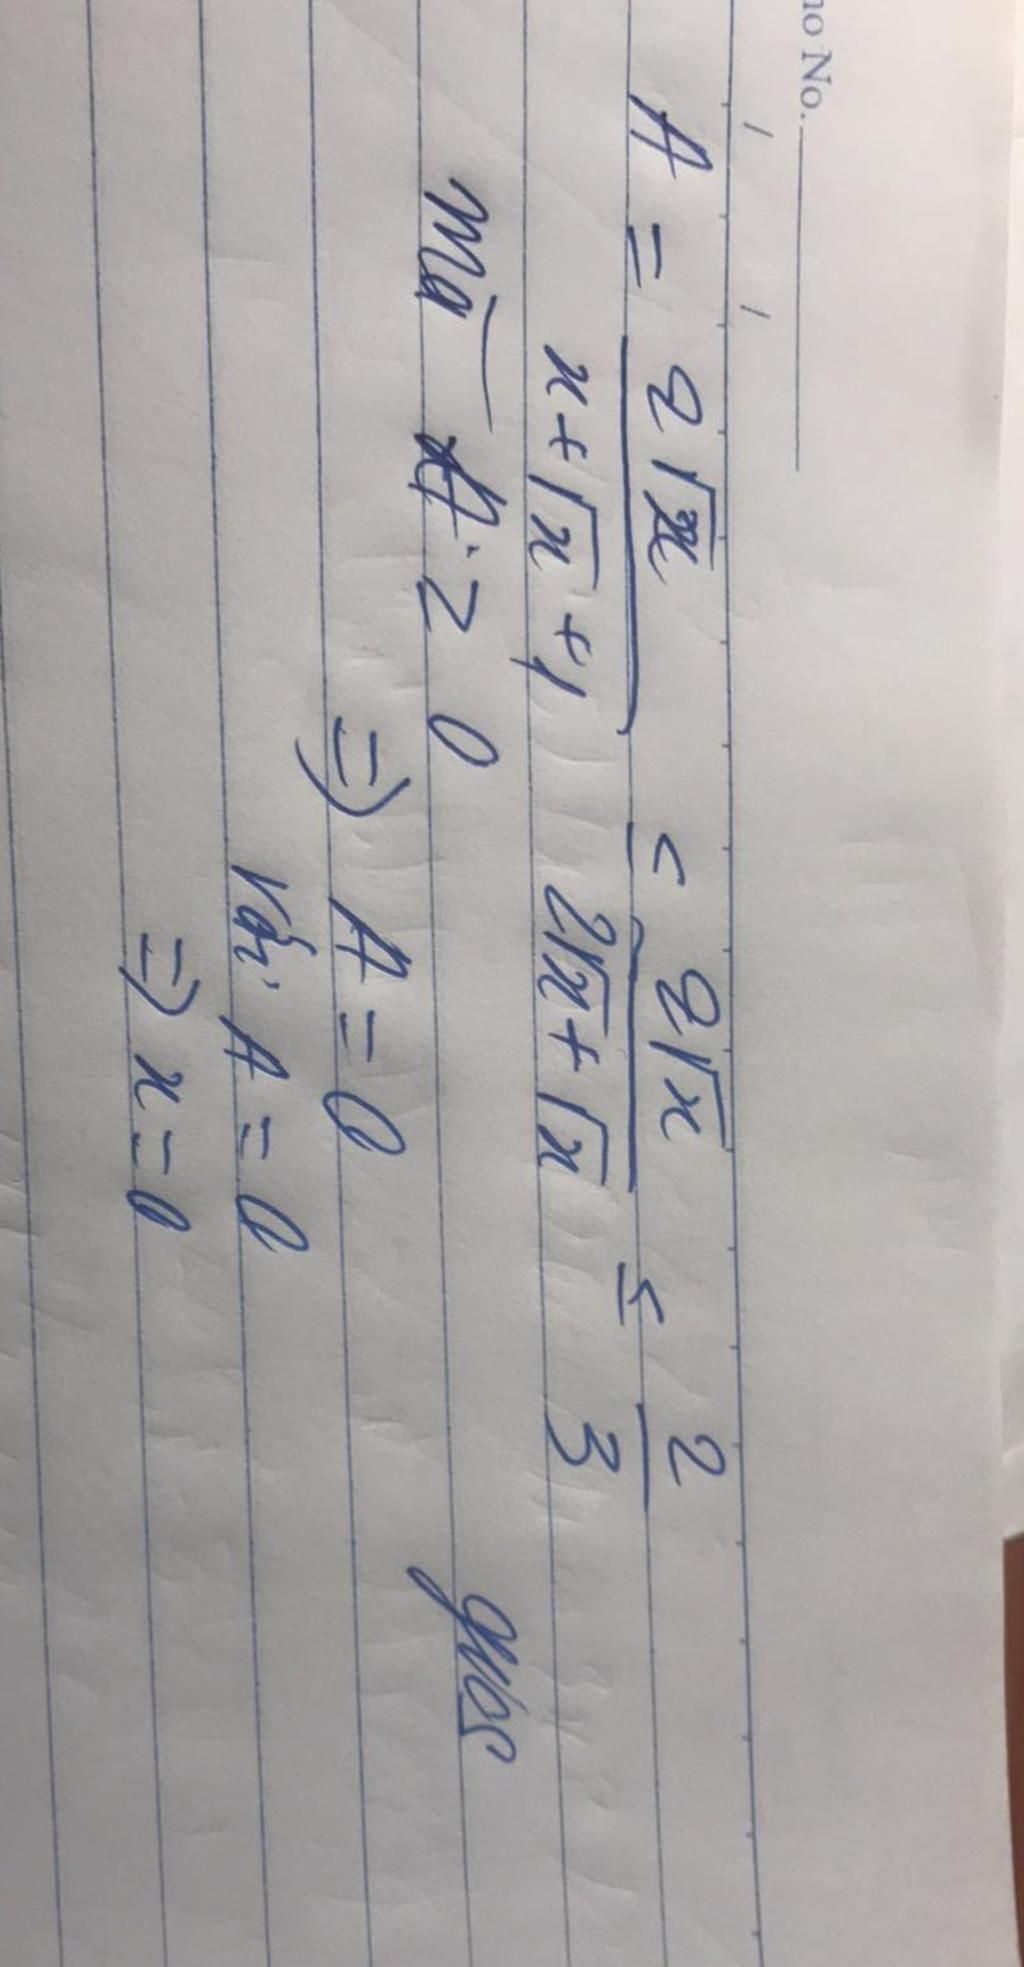 no No.
A = 2√x / (x + √x + 1) ≤ 2√x / (2√x + √x) ≤ 2/3
Mà A ≥ 0
⇒ A = 0
Với A = 0
⇒ x = 0